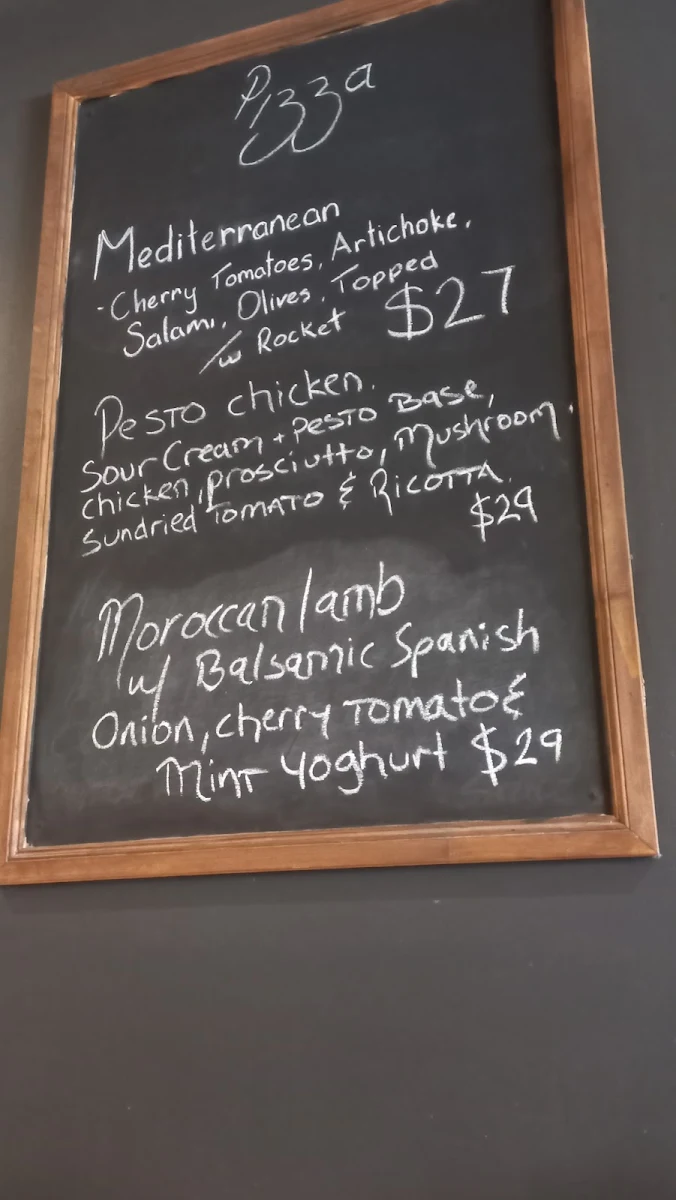 Pizza
Mediterranean
- Cherry Tomatoes, Artichoke,
Salami, Olives, Topped
/w Rocket $27
Pesto chicken.
Sour Cream + Pesto Base,
chicken, prosciutto, Mushroom.
sundried Tomato & Ricotta.
$29
Moroccan lamb
w/ Balsamic Spanish
Onion, cherry Tomato &
Mint Yoghurt $29